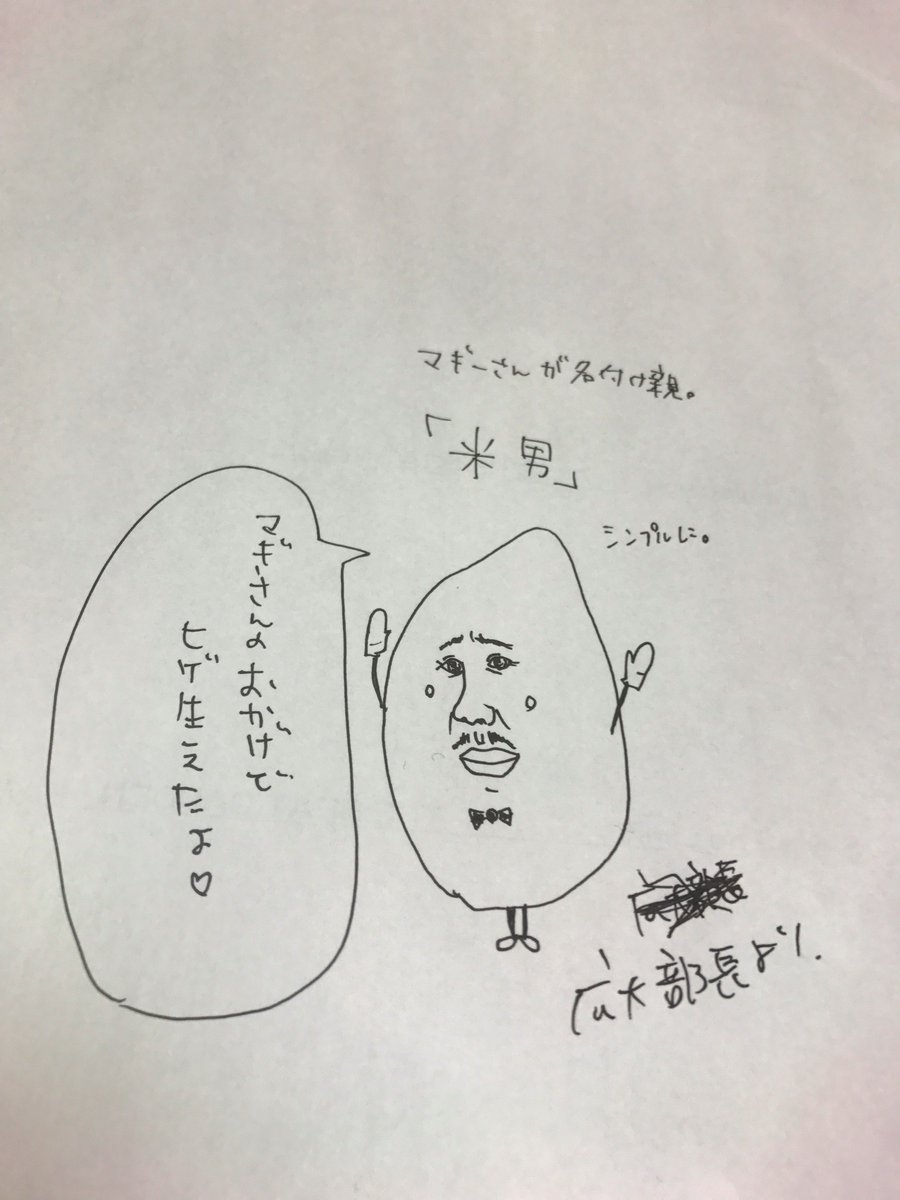 マギーさんが名付け親。
「米男」
シンプルに。
マギーさんのおかげで
ヒゲ生えたよ♡
広大部長より.